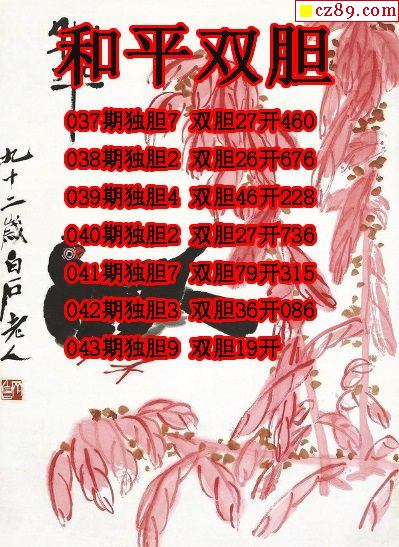 cz89.com
和平双胆
037期独胆7 双胆27开460
038期独胆2 双胆26开676
039期独胆4 双胆46开228
040期独胆2 双胆27开736
041期独胆7 双胆79开315
042期独胆3 双胆36开086
043期独胆9 双胆19开
九十二岁白石老人